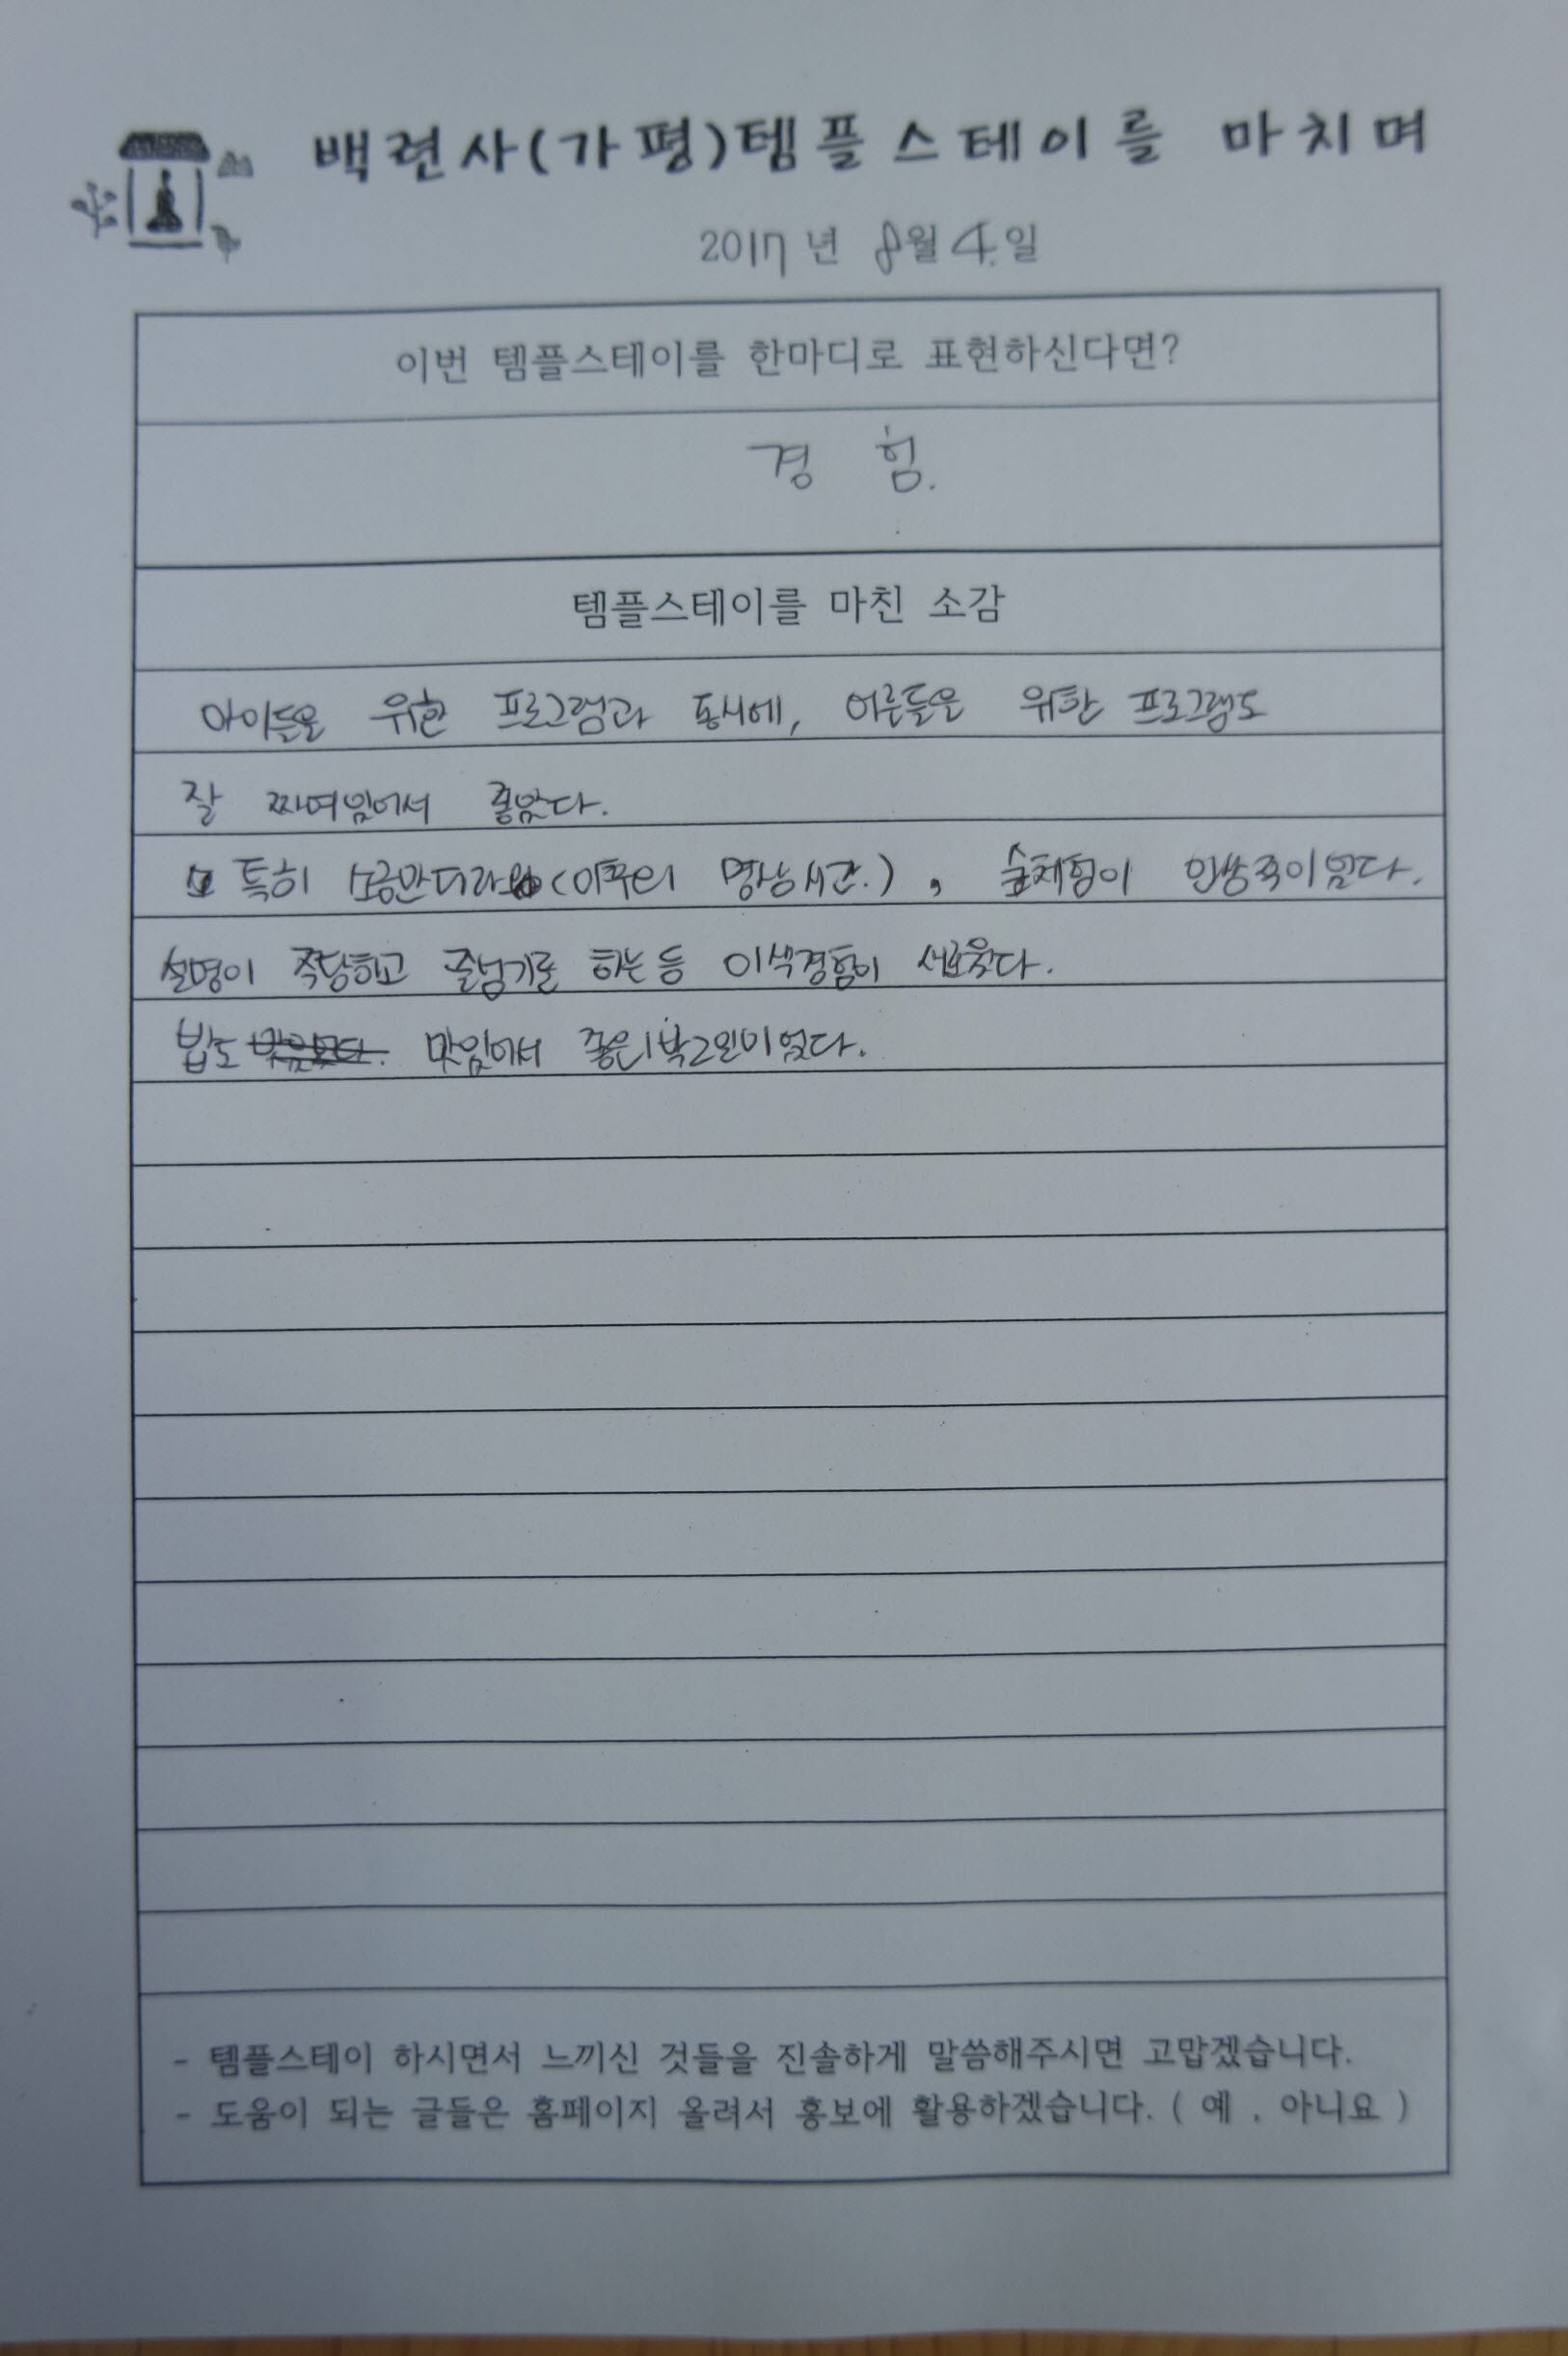 백련사(가평)템플스테이를 마치며
2017년 8월 4.일
이번 템플스테이를 한마디로 표현하신다면?
경 험.
템플스테이를 마친 소감
아이들을 위한 프로그램과 동시에, 어른들을 위한 프로그램도
잘 짜여있어서 좋았다.
특히 소금만다라(이후의 명상시간.), 숲체험이 인상적이었다.
설명이 적당하고 줄넘기를 하는 등 이색경험이 새로웠다.
밥도 맛있어서 좋은 1박2일이었다.
- 템플스테이 하시면서 느끼신 것들을 진솔하게 말씀해주시면 고맙겠습니다.
- 도움이 되는 글들은 홈페이지 올려서 홍보에 활용하겠습니다. ( 예 , 아니요 )